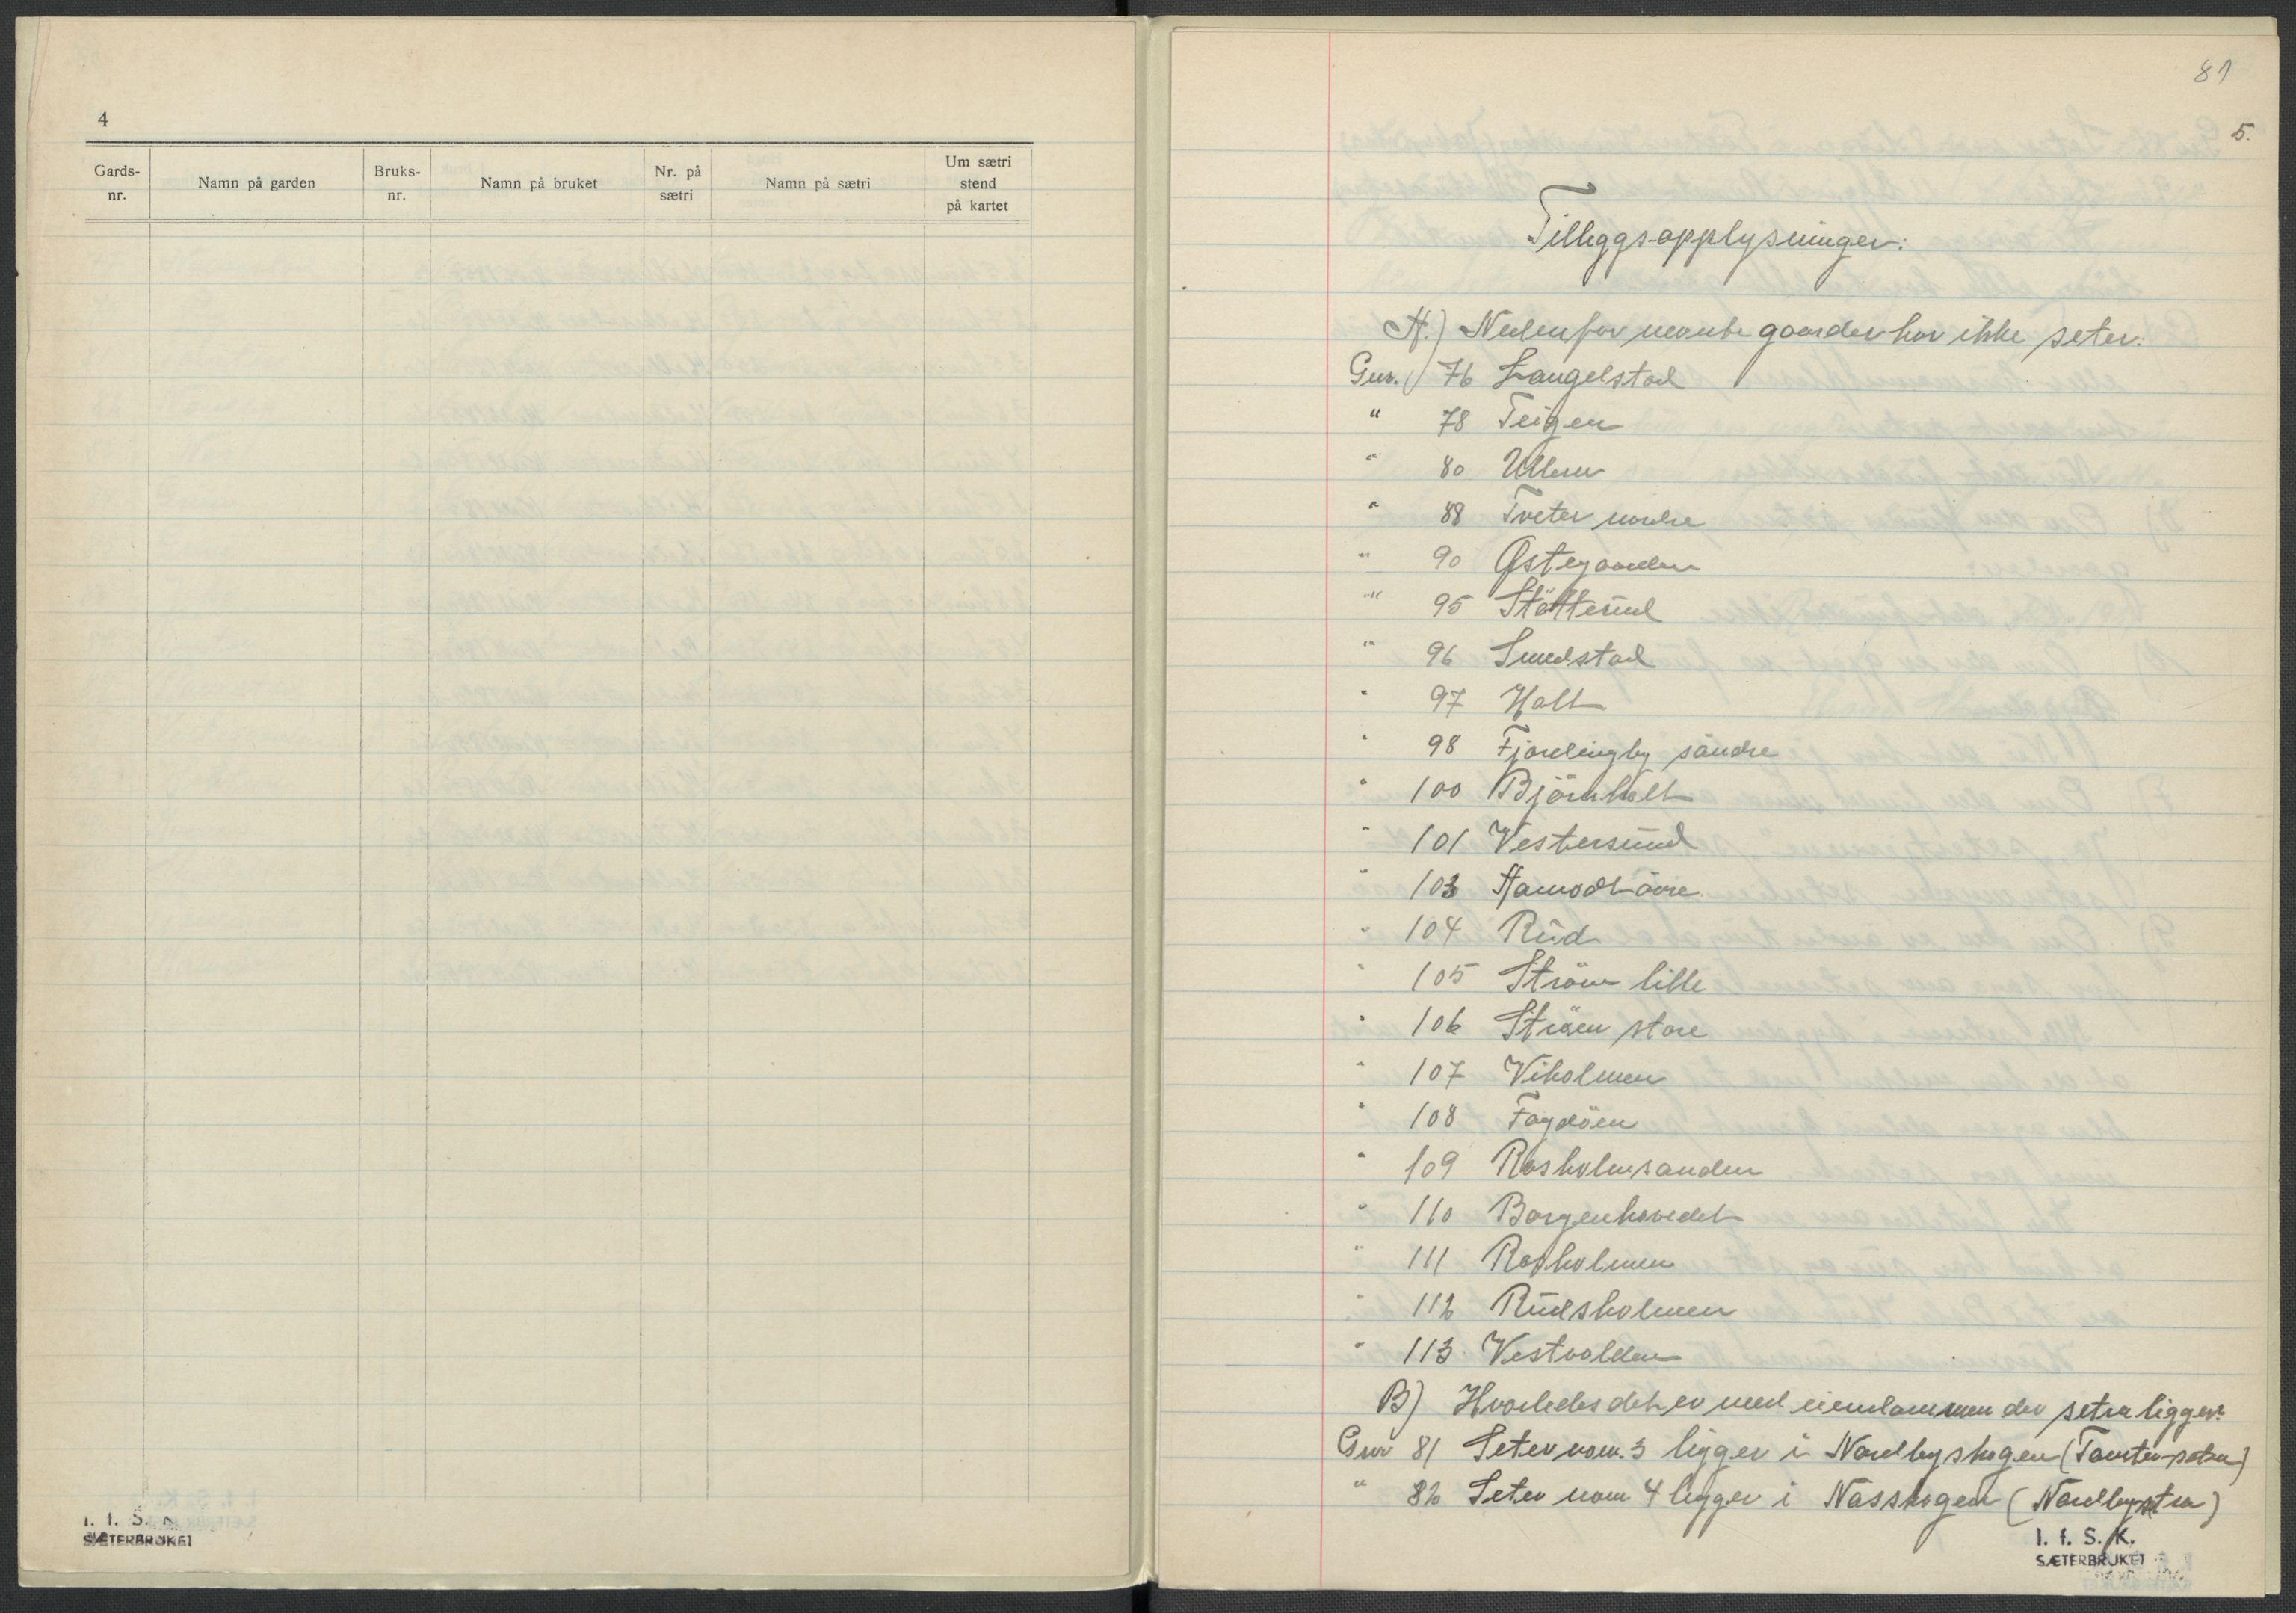 4
Gards-
nr.
Namn på garden
Bruks-
nr.
Namn på bruket
Nr. på
sætri
Namn på sætri
Um sætri
stend
på kartet
I. f. S. K.
SÆTERBRUKET
81
5.
Tilleggsopplysninger:
A.) Nedenfor nevnte gaarder har ikke seter:
Gnr. 76 Langelstad
" 78 Teigen
" 80 Ullern
" 88 Tveter nordre
" 90 Østegaarden
" 95 Støtterud
" 96 Smedstad
" 97 Holt
" 98 Fjordingby söndre
" 100 Björnholt
" 101 Vestersund
" 103 Aamodt övre
" 104 Rud
" 105 Ström lille
" 106 Ström store
" 107 Viholmen
" 108 Fagdöen
" 109 Rosholmsanden
" 110 Borgenhovedet
" 111 Rosholmen
" 112 Rudsholmen
" 113 Vestvolden
B) Hvorledes det er med eiendommen der setra ligger:
Gnr 81 Seter nom. 3 ligger i Nordbyskogen (Tomter-setra)
" 82 Seter nom 4 ligger i Nässkogen (Nordbysetra)
I. f. S. K.
SÆTERBRUKET